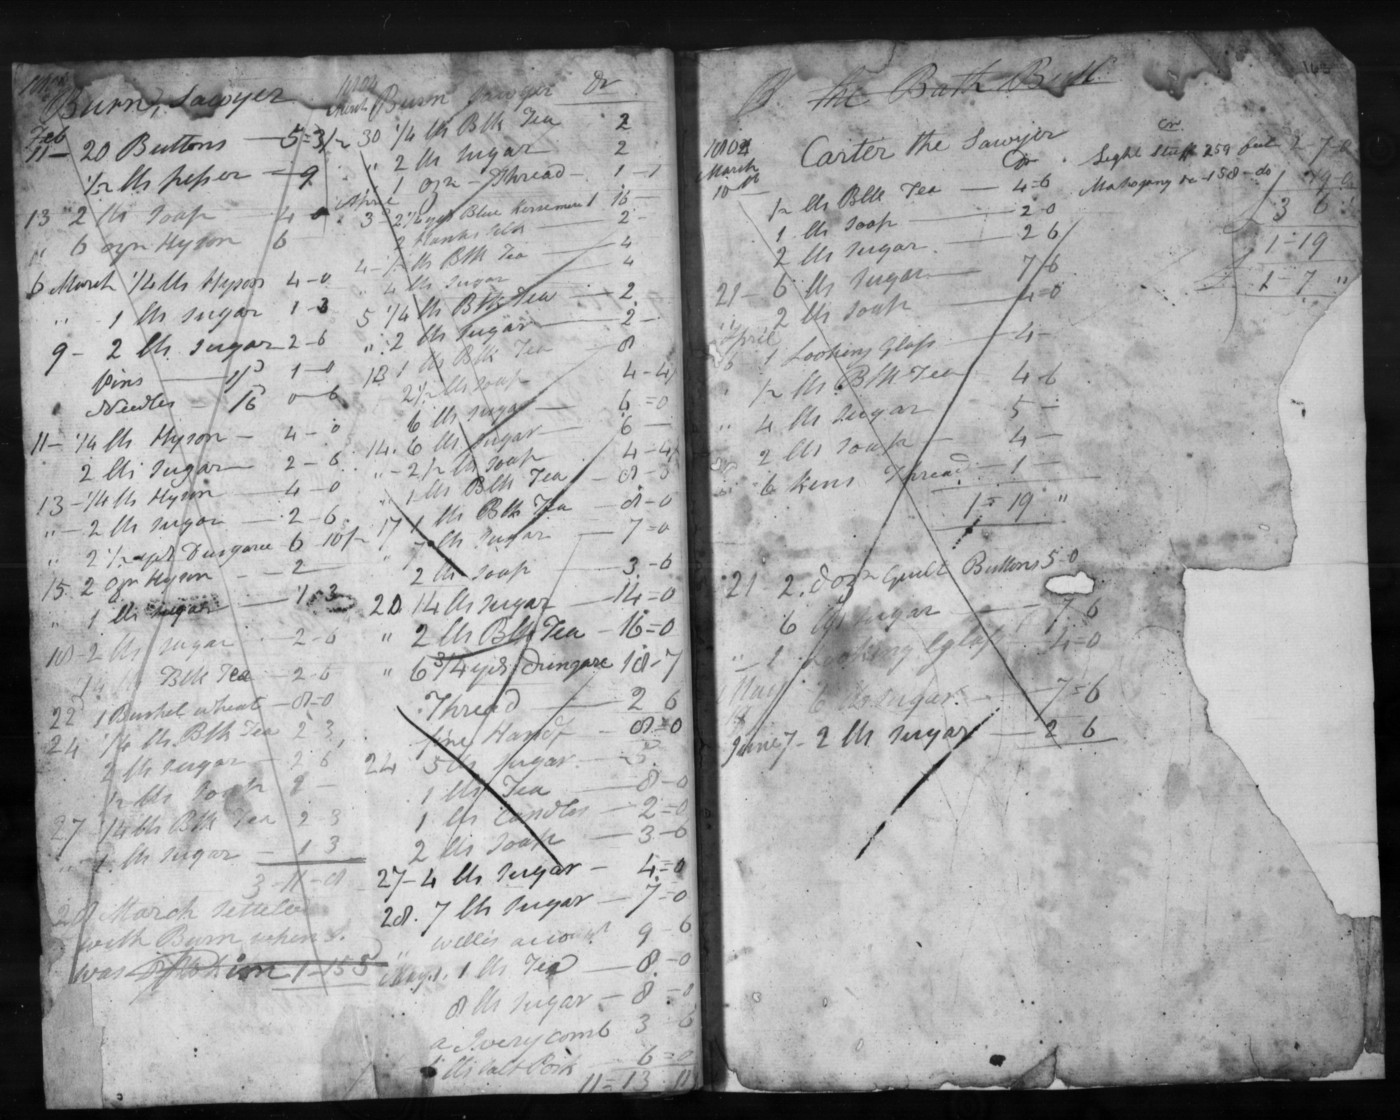 Burn, Sawyer
Feb
11 - 20 Buttons - 5=3½
½ lb pepper - 9
13 " 2 lbs Soap - 4 - 0
" 6 ozn Hyson 6 -
6 March ¼ lb Hyson 4-0
" 1 lb Sugar 1-3
9 - 2 lbs Sugar 2-6
pins 1-0
Needles - 0-6
11 - ¼ lb Hyson - 4-0
2 lbs Sugar - 2-6
13 - ¼ lb Hyson - 4-0
" - 2 lbs Sugar - 2-6
" 2½ yds Dungaree 6-10½
15 2 ozn Hyson - 2 -
" 1 lb Sugar - 1-3
18 - 2 lbs Sugar - 2-6
¼ lb Blk Tea - 2-6
22 1 Bushel wheat - 8=0
24 ¼ lb Blk Tea 2-3
2 lbs Sugar - 2 6
½ lb Soap 2 -
27 - ¼ lb Blk Tea 2-3
" 1 lb Sugar - 1 3
3-11-8
28 March Settled
with Burn when I
was 1-15 5
March Burn Sawyer Dr
30 ¼ lb Blk Tea 2
" 2 lbs Sugar 2
" 1 ozn - Thread - 1-1
April 3 2½ yds Blue Kersemere 1 16 -
2 2 -
4 - ½ lb Blk Tea - 4
" 4 lbs Sugar 4
5 ¼ lb Blk Tea - 2
" 2 lbs Sugar - 2 -
13 1 lb Blk Tea - 8
2½ lbs Soap 4-4½
6 lbs Sugar - 6=0
14. 6 lbs Sugar - 6 -
" - 2½ lbs Soap 4-4½
" 1 lb Blk Tea - 8-3
17 1 lb Blk Tea - 8-0
" 7 lbs Sugar - 7=0
2 lbs Soap - 3-6
20 14 lbs Sugar - 14=0
" 2 lbs Blk Tea - 16=0
" 6¾ yds Dungare 18-7
Thread - 2 6
fine Handf - 8=0
24 5 lbs Sugar - 5
1 lb Tea - 8-0
1 lb Candles - 2=0
2 lbs Soap - 3-6
27 - 4 lbs Sugar - 4=0
28. 7 lbs Sugar - 7=0
" Wellis account 9-6
May 1. 1 lb Tea - 8-0
8 lbs Sugar - 8=0
a Iverycomb 3-6
lbs Salt Pork - 6=0
11=13 11
the Bath Bull
Carter the Sawyer
1808
March Dr
10th ½ lb Blk Tea - 4=6
1 lb Soap - 2-0
2 lbs Sugar - 2 6
21 - 6 lbs Sugar - 7-6
" 2 lbs Soap 4=0
April
6 1 Looking Glass - 4 -
½ lb Blk Tea 4-6
" 4 lbs Sugar 5 -
" 2 lbs Soap - 4 -
" 6 skens Thread - 1 -
1=19 "
21 2 dozn Guilt Buttons 5-0
6 lbs Sugar - 7-6
" - 1 Looking Glass 4=0
May
18 6 lbs Sugar - 7=6
June 7 - 2 lbs Sugar - 2 6
Cr
Light Stuff 259 feet 2-7-
Mahogany do 158 - do 1 19-0
3 6
1=19
1-7 "